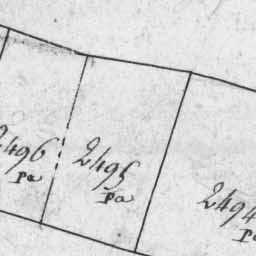 2496
pa
2495
pa
2494
pa